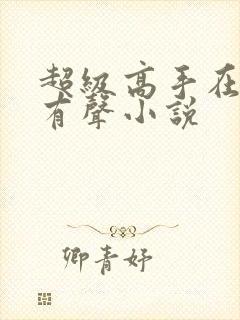 超級高手在
有聲小說
卿青妤